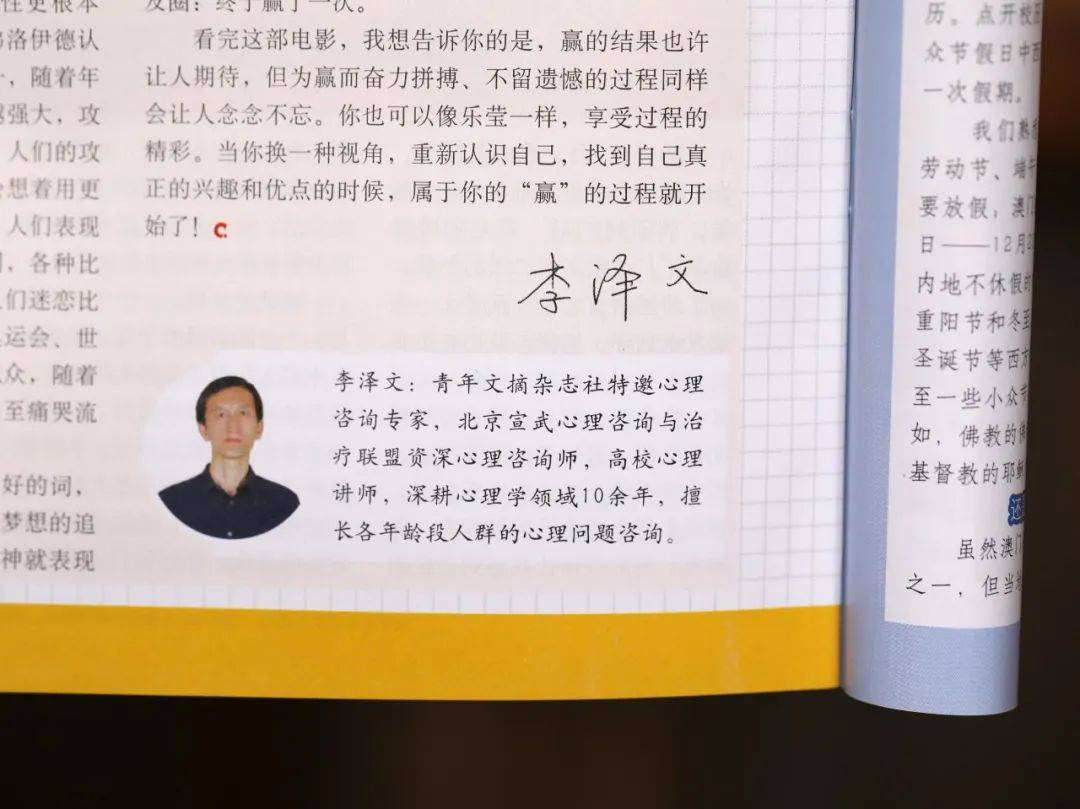 性更根本
弗洛伊德认
,随着年
越强大,攻
人们的攻
会想着用更
人们表现
各种比
人们迷恋比
运会、世
众,随着
至痛哭流
好的词,
梦想的追
神就表现
友圈:终于赢了一次。
看完这部电影,我想告诉你的是,赢的结果也许
让人期待,但为赢而奋力拼搏、不留遗憾的过程同样
会让人念念不忘。你也可以像乐莹一样,享受过程的
精彩。当你换一种视角,重新认识自己,找到自己真
正的兴趣和优点的时候,属于你的“赢”的过程就开
始了!
李泽文
李泽文:青年文摘杂志社特邀心理
咨询专家,北京宣武心理咨询与治
疗联盟资深心理咨询师,高校心理
讲师,深耕心理学领域10余年,擅
长各年龄段人群的心理问题咨询。
历。点开校历
众节假日中西
一次假期。
我们熟
劳动节、端午
要放假,澳门
日——12月2
内地不休假的
重阳节和冬至
圣诞节等西方
至一些小众节
如,佛教的佛
基督教的耶稣
还
虽然澳门
之一,但当地